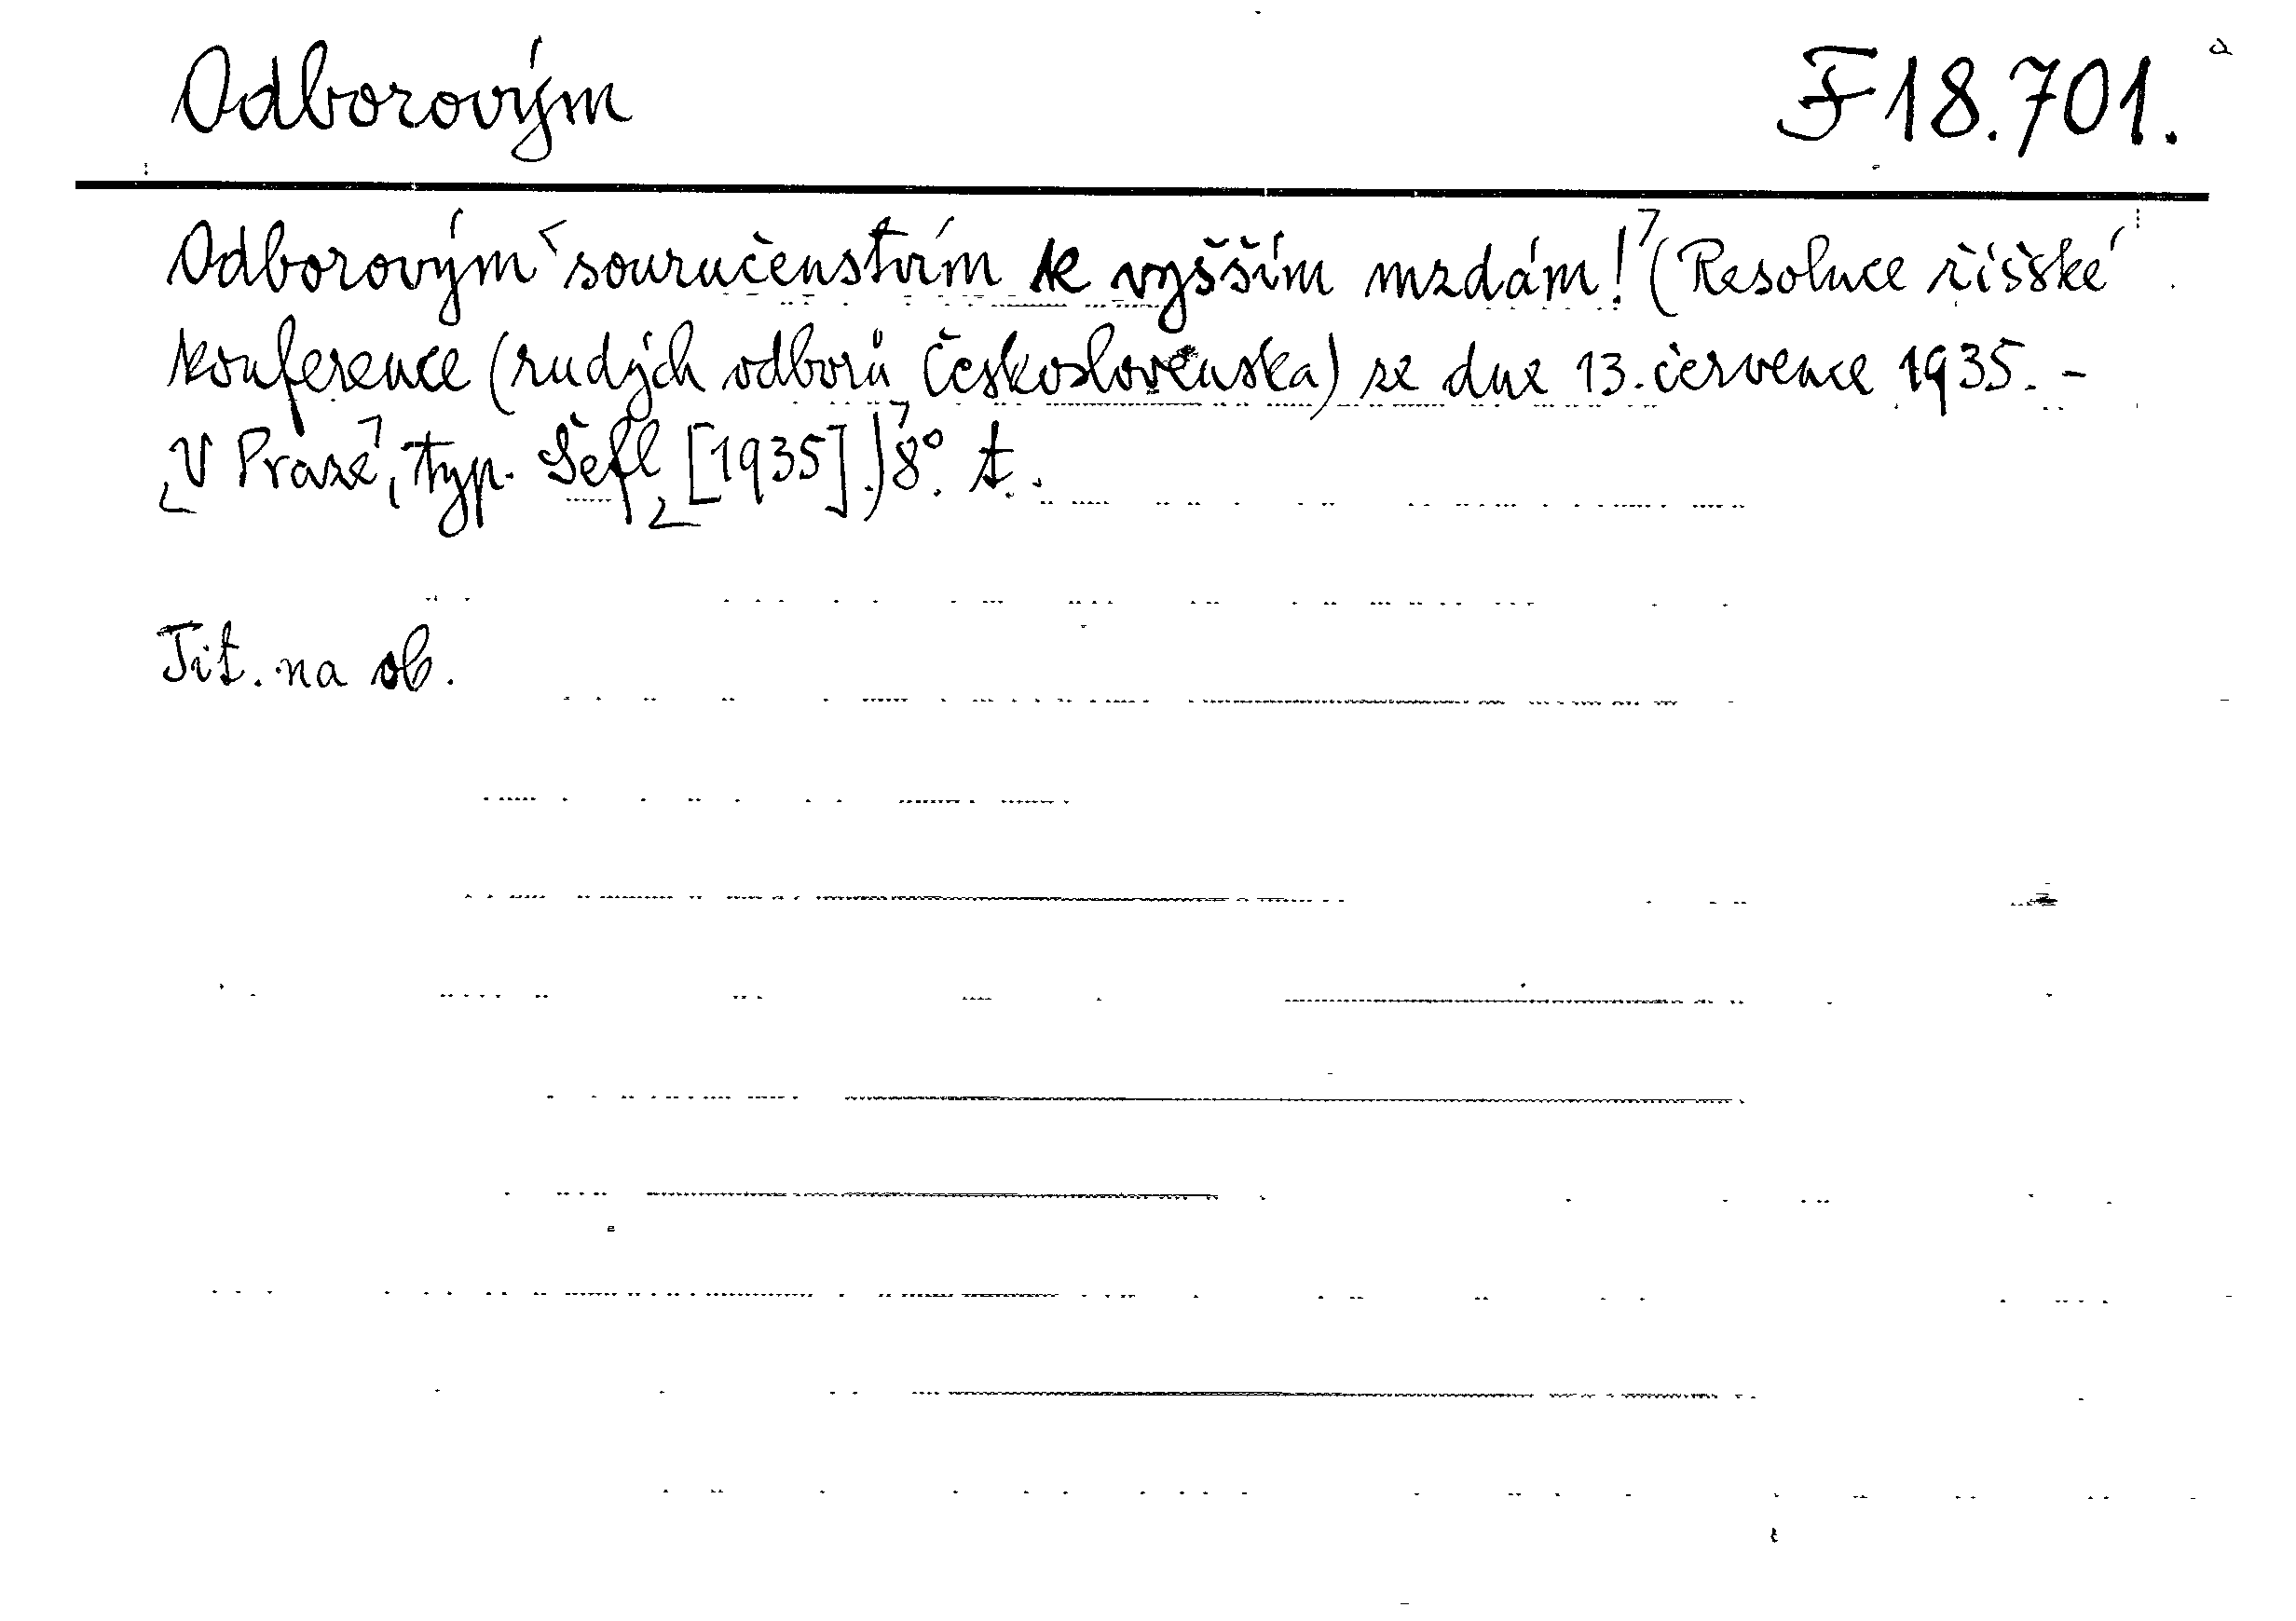 Odborovým F 18.701.
Odborovým součenstvím k vyšším mzdám! (Resoluce říšské
konference (rudých odborů Československa) ze dne 13. července 1935. -
V Praze, typ. Šefl [1935].) 8°. t.
Tit. na ob.